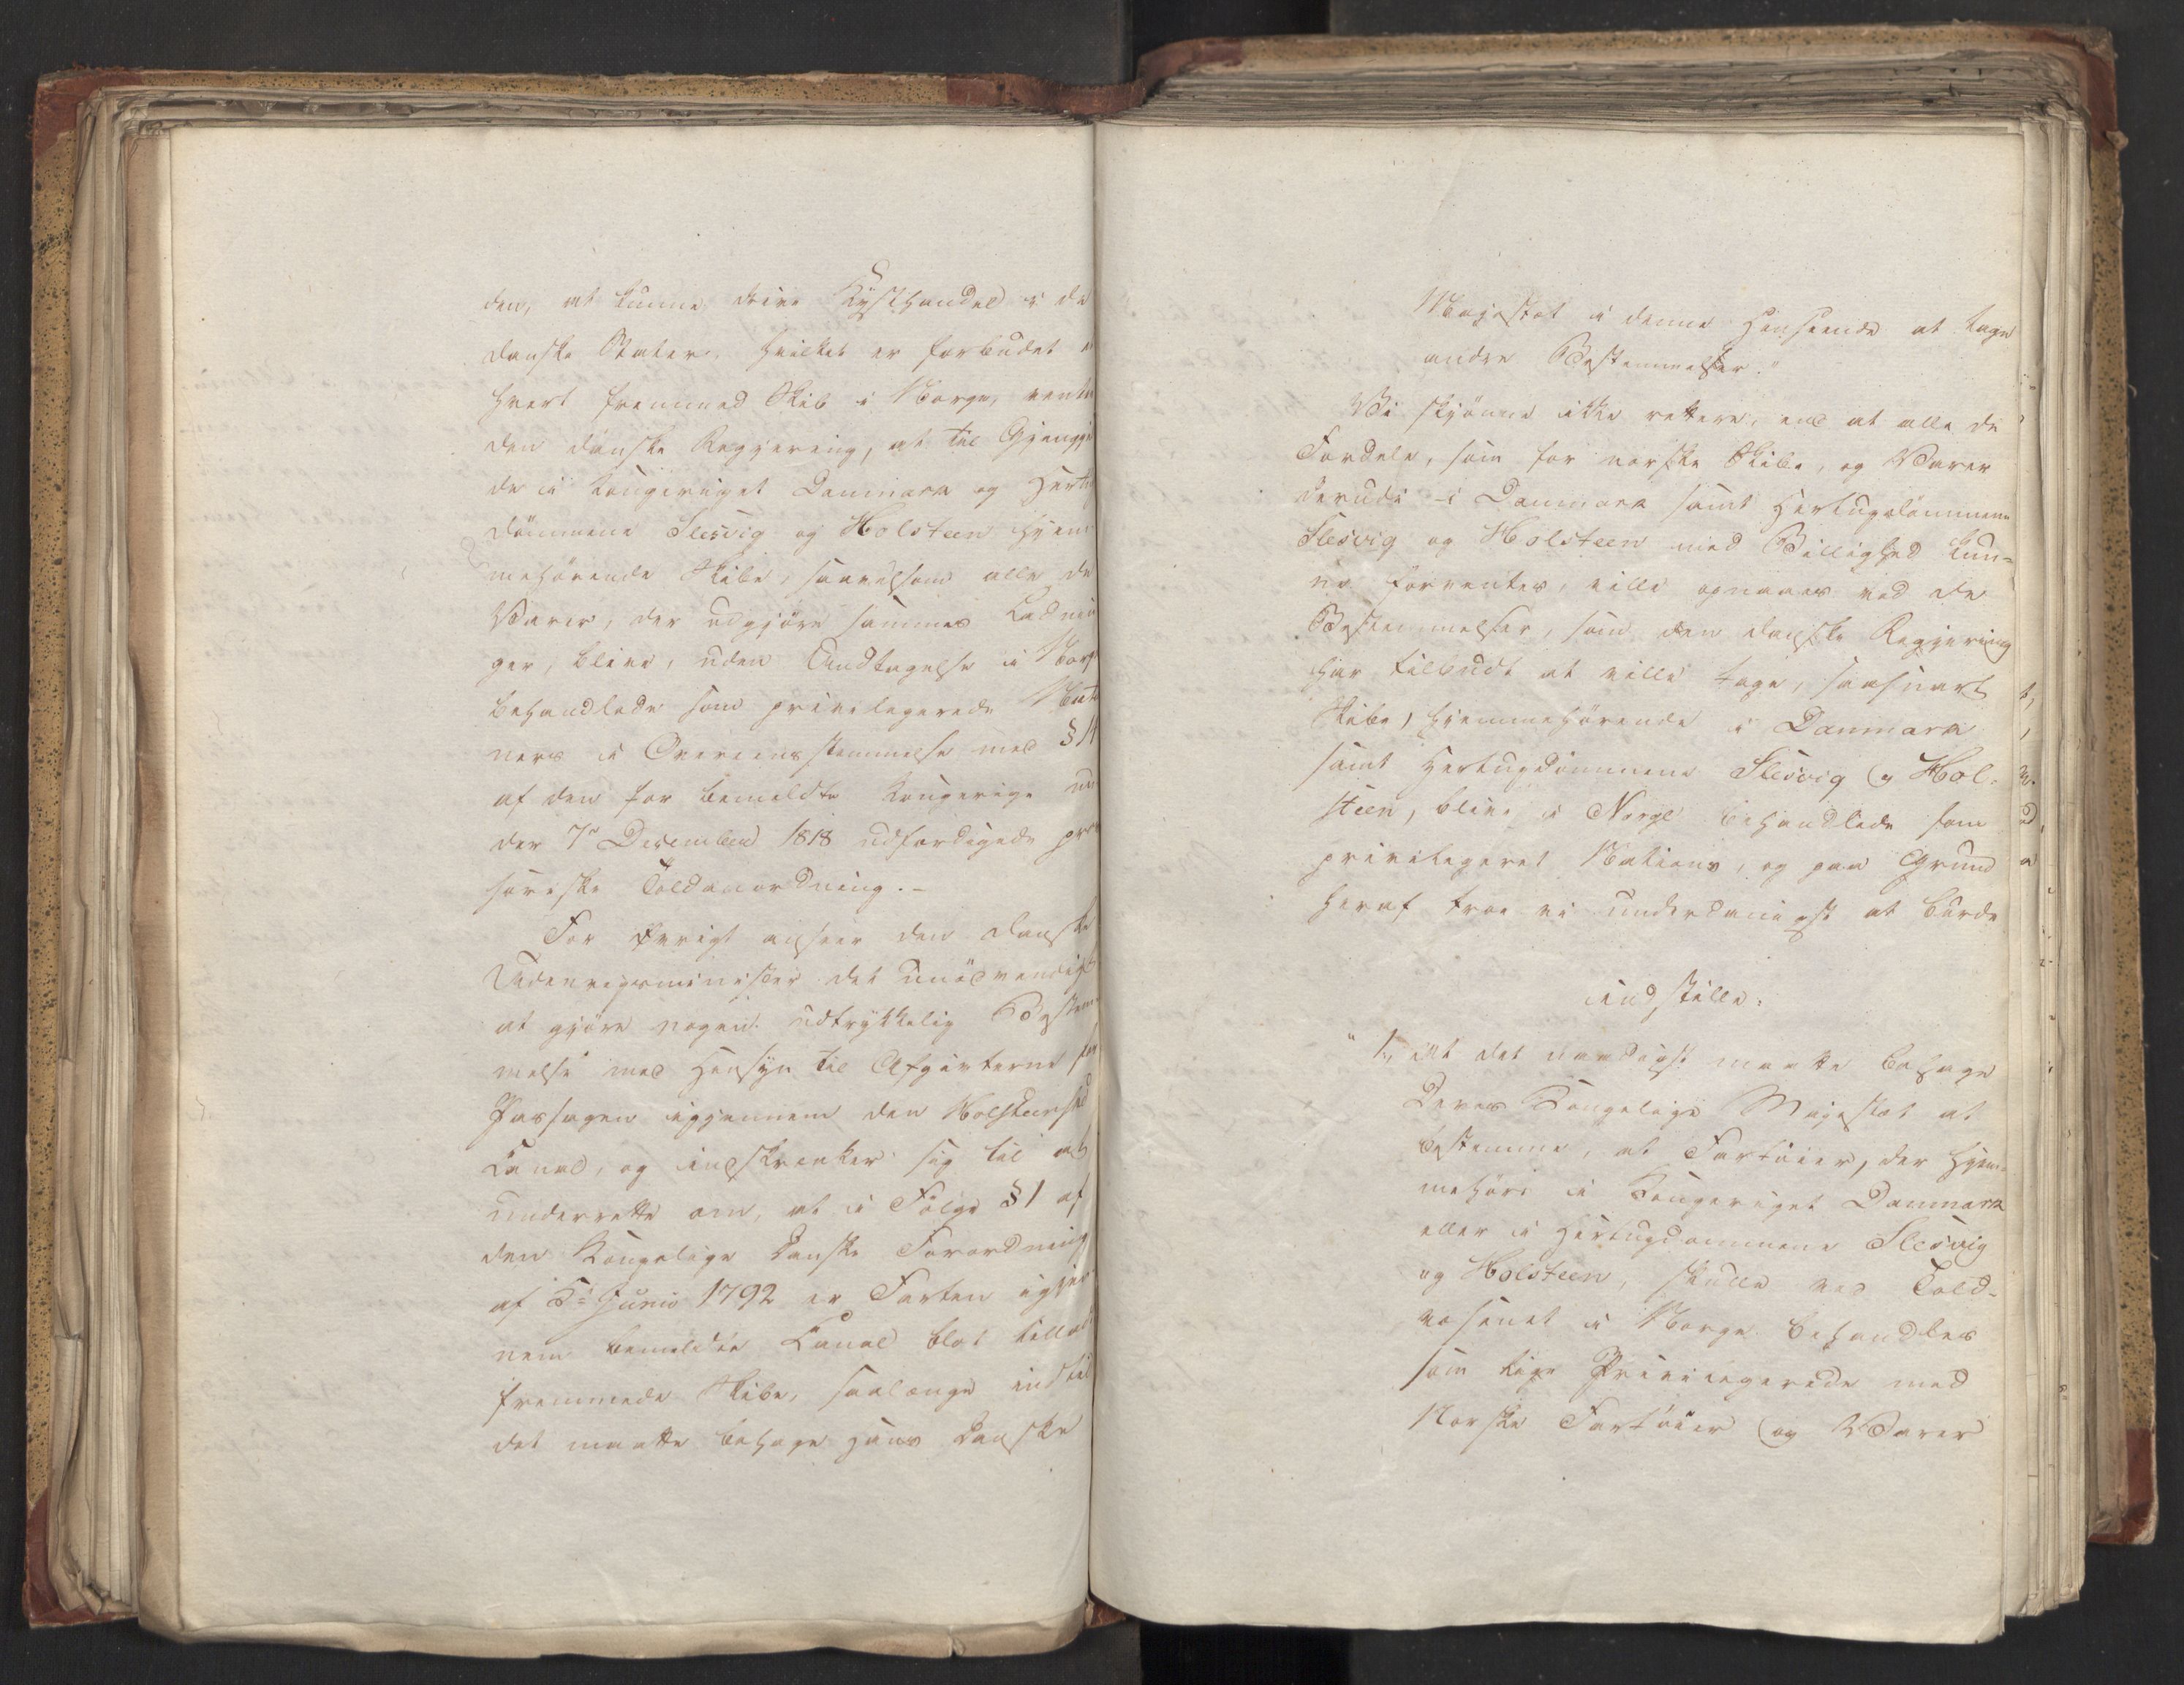 den, at kunne drive Kysthandel i de
danske Stater, hvilket er forbudet e
hvert fremmed Skib i Norge, vente
den danske Regjering, at til Gjengje
de i Kongeriget Danmark og Hertu
dömmene Slesvig og Holsteen hjem
mehörende Skibe, saavelsom alle de
Varer, der udgjöre sammes Ladnin
ger, blive, uden Undtagelse i Norge
behandlede som privilegerede Natio
ners i Overeensstemmelse med § 14
af den for bemeldte Kongerige un
der 7de December 1818 udfærdigede pro
soriske Toldanordning.-
For övrigt ansees den danske
Udenrigsminister det unödvendigt
at gjöre nogen udtrykkelig Bestem-
melse med Hensyn til Afgivterne for
Passagen igjennem den Holsteenske
Canal, og indskrænker sig til at
underrette om, at i Fölge § 1 af
den Kongelige Danske Forordning
af 5te Junio 1792 er Farten igjen
nem bemeldte Canal blot tillad
fremmede Skibe, saalænge indtil
det maatte behage Hans Danske
Majestæt i denne Henseende at tage
andre Bestemmelser."
Vi skjönne ikke rettere, end at alle de
Fordele, som for norske Skibe, og Varer
derudi i Danmark samt Hertugdömmene
Slesvig og Holsteen med Billighed kun-
ne forventes, ville opnaaes ved de
Bestemmelser, som den danske Regjering
har tilbudt at ville tage, saasnart
Skibe, hjemmehörende i Danmark
samt Hertugdömmene Slesvig og Hol-
steen, blive i Norge behandlede som
privilegeret Nations, og paa Grund
heraf troe vi underdanigst at burde
indstille:
"1, at det naadigst maatte behage
Deres Kongelige Majestæt at
bestemme, at Fartöier, der hjem-
mehöre i Kongeriget Danmark
eller i Hertugdommene Slesvig
og Holsteen, skulle ved Told-
væsenet i Norge behandles
som lige Privilegerede med
Norske Fartöier og Varer